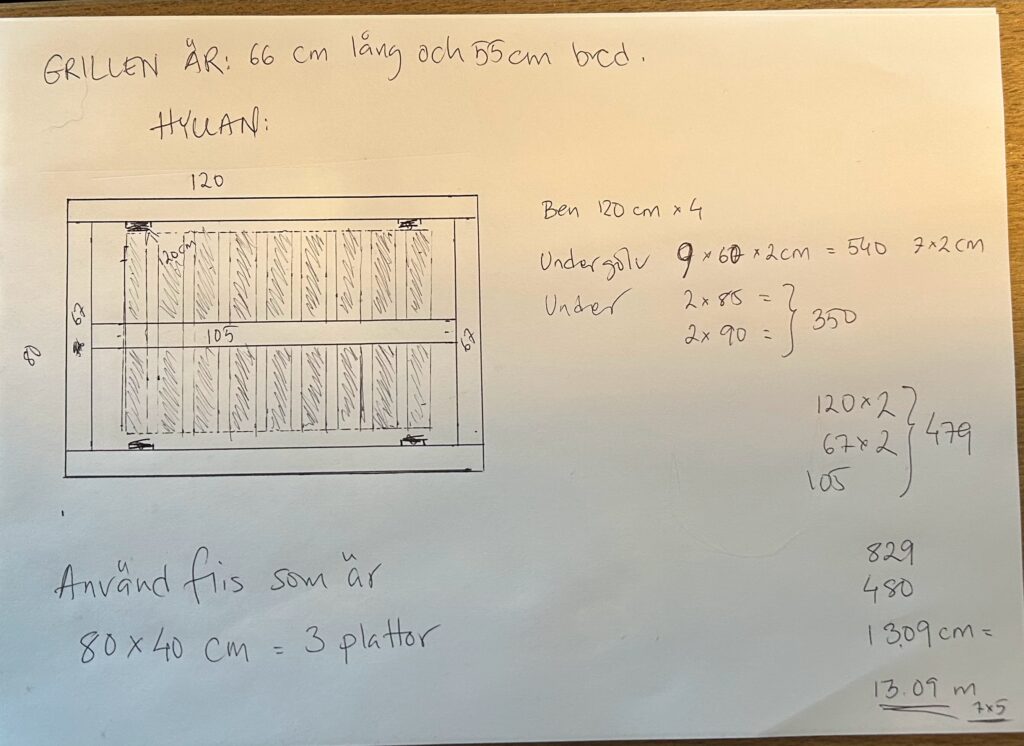 GRILLEN ÄR: 66 cm lång och 55cm bred.
HYLLAN:
120
120cm
67
105
67
80
Ben 120 cm × 4
Undergolv 9 × 60 × 2cm = 540 7×2cm
Under 2 × 85 =
2 × 90 =
350
120 × 2
67 × 2
105
479
829
480
1309 cm =
13.09 m
7×5
Använd fiis som är
80 × 40 cm = 3 plattor